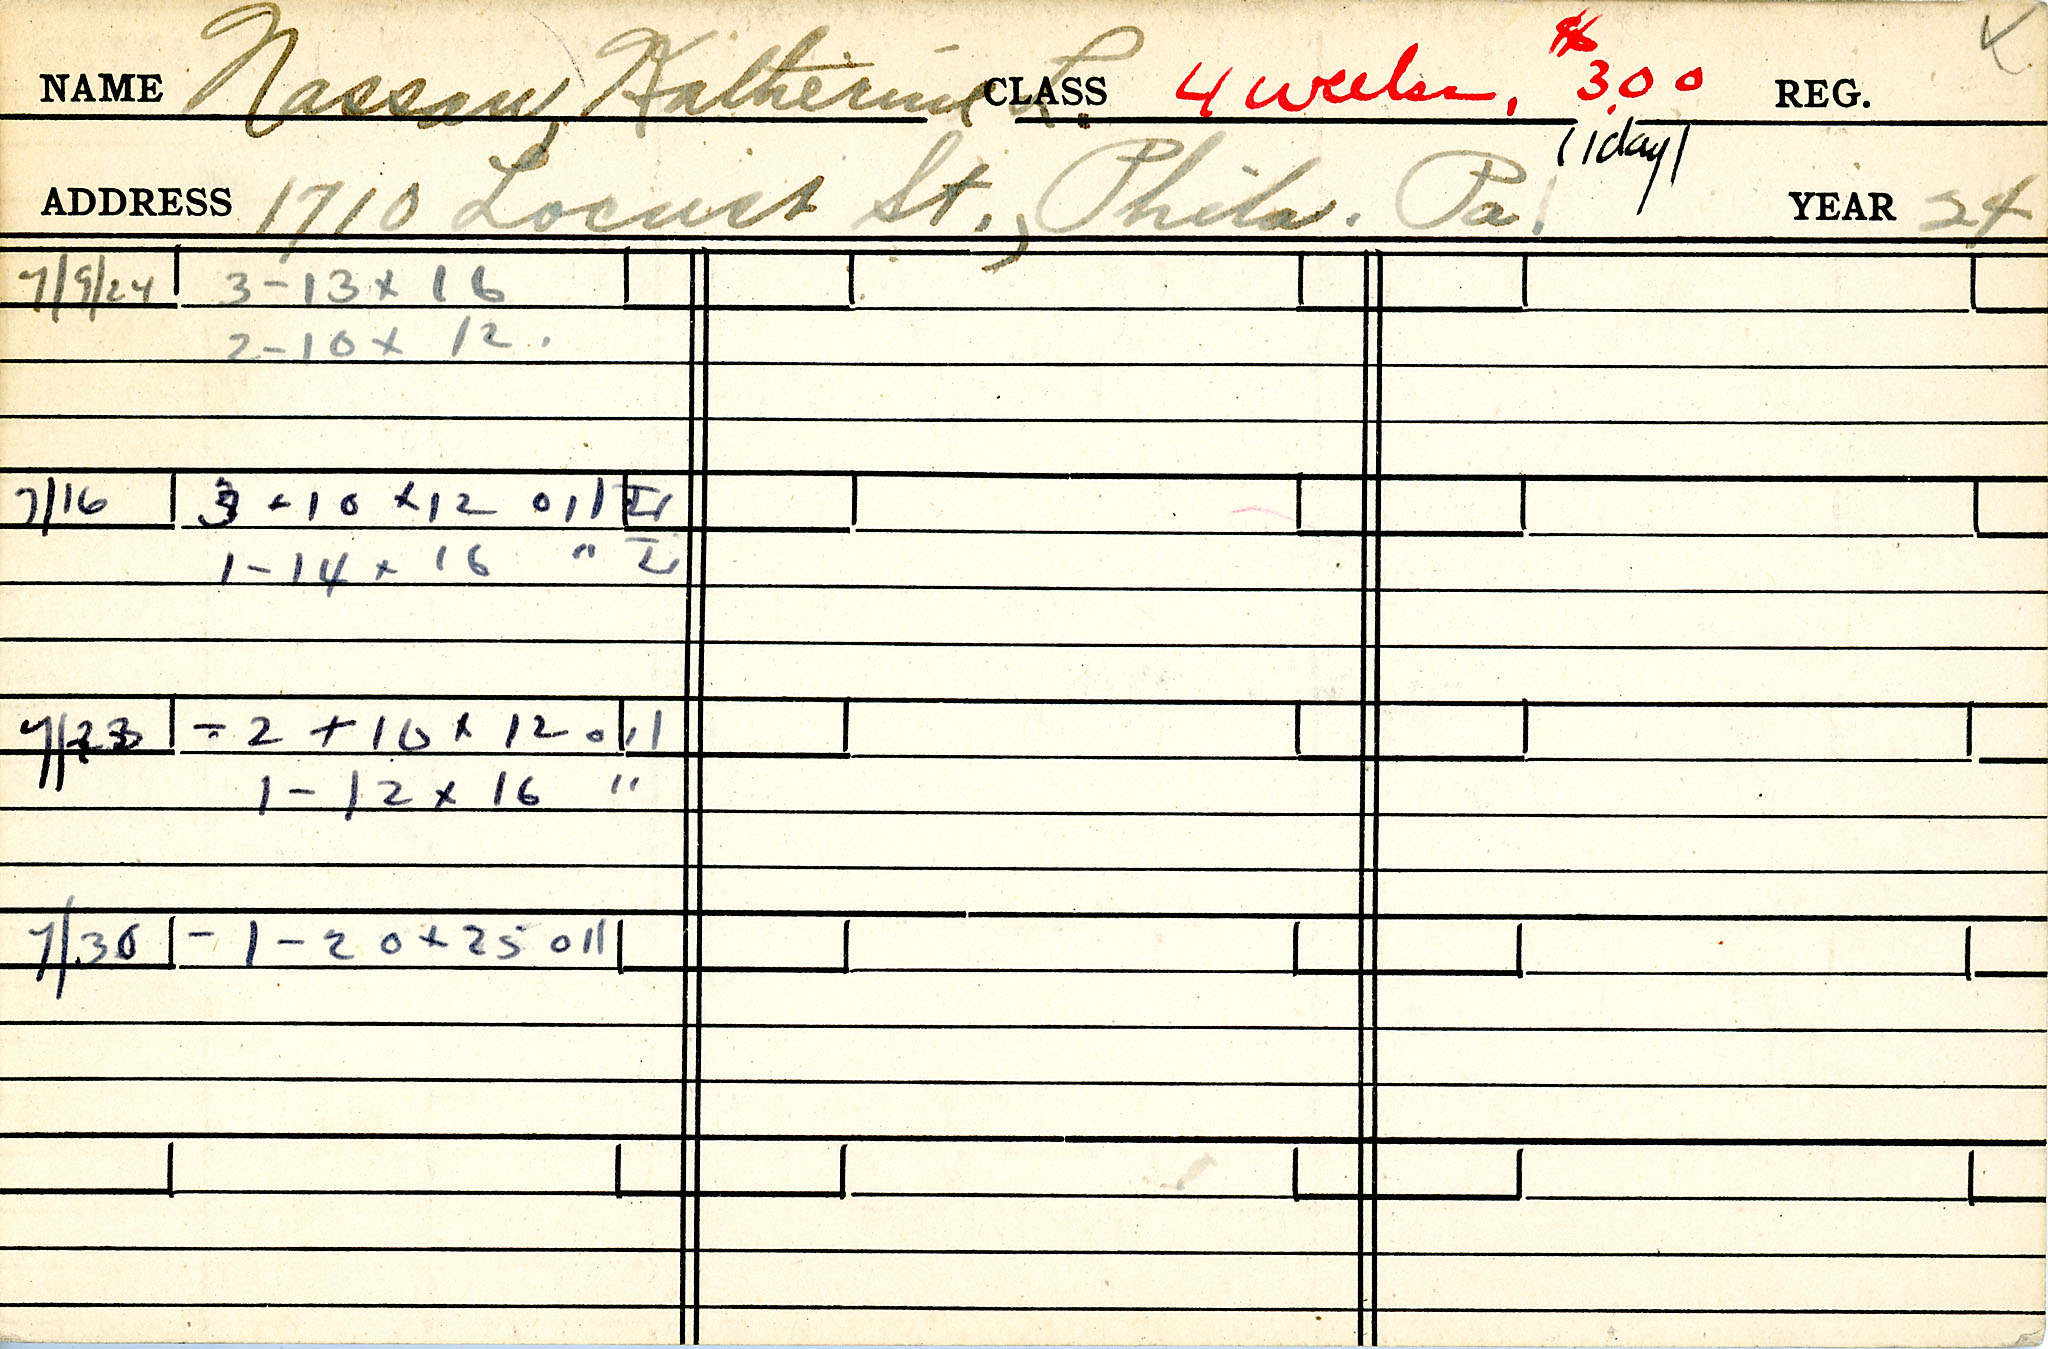 NAME Nassau, Katherine L. CLASS 4 weeks, $3.00 REG.
(1 day)
ADDRESS 1710 Locust St., Phila. Pa. YEAR 24
7/9/24 3-13 x 16
2-10 x 12.
7/16 3-10 x 12 oil II
1-14 x 16 " I
7/23 - 2 + 10 x 12 oil
1-12 x 16 "
7/30 - 1-20 x 25 oil